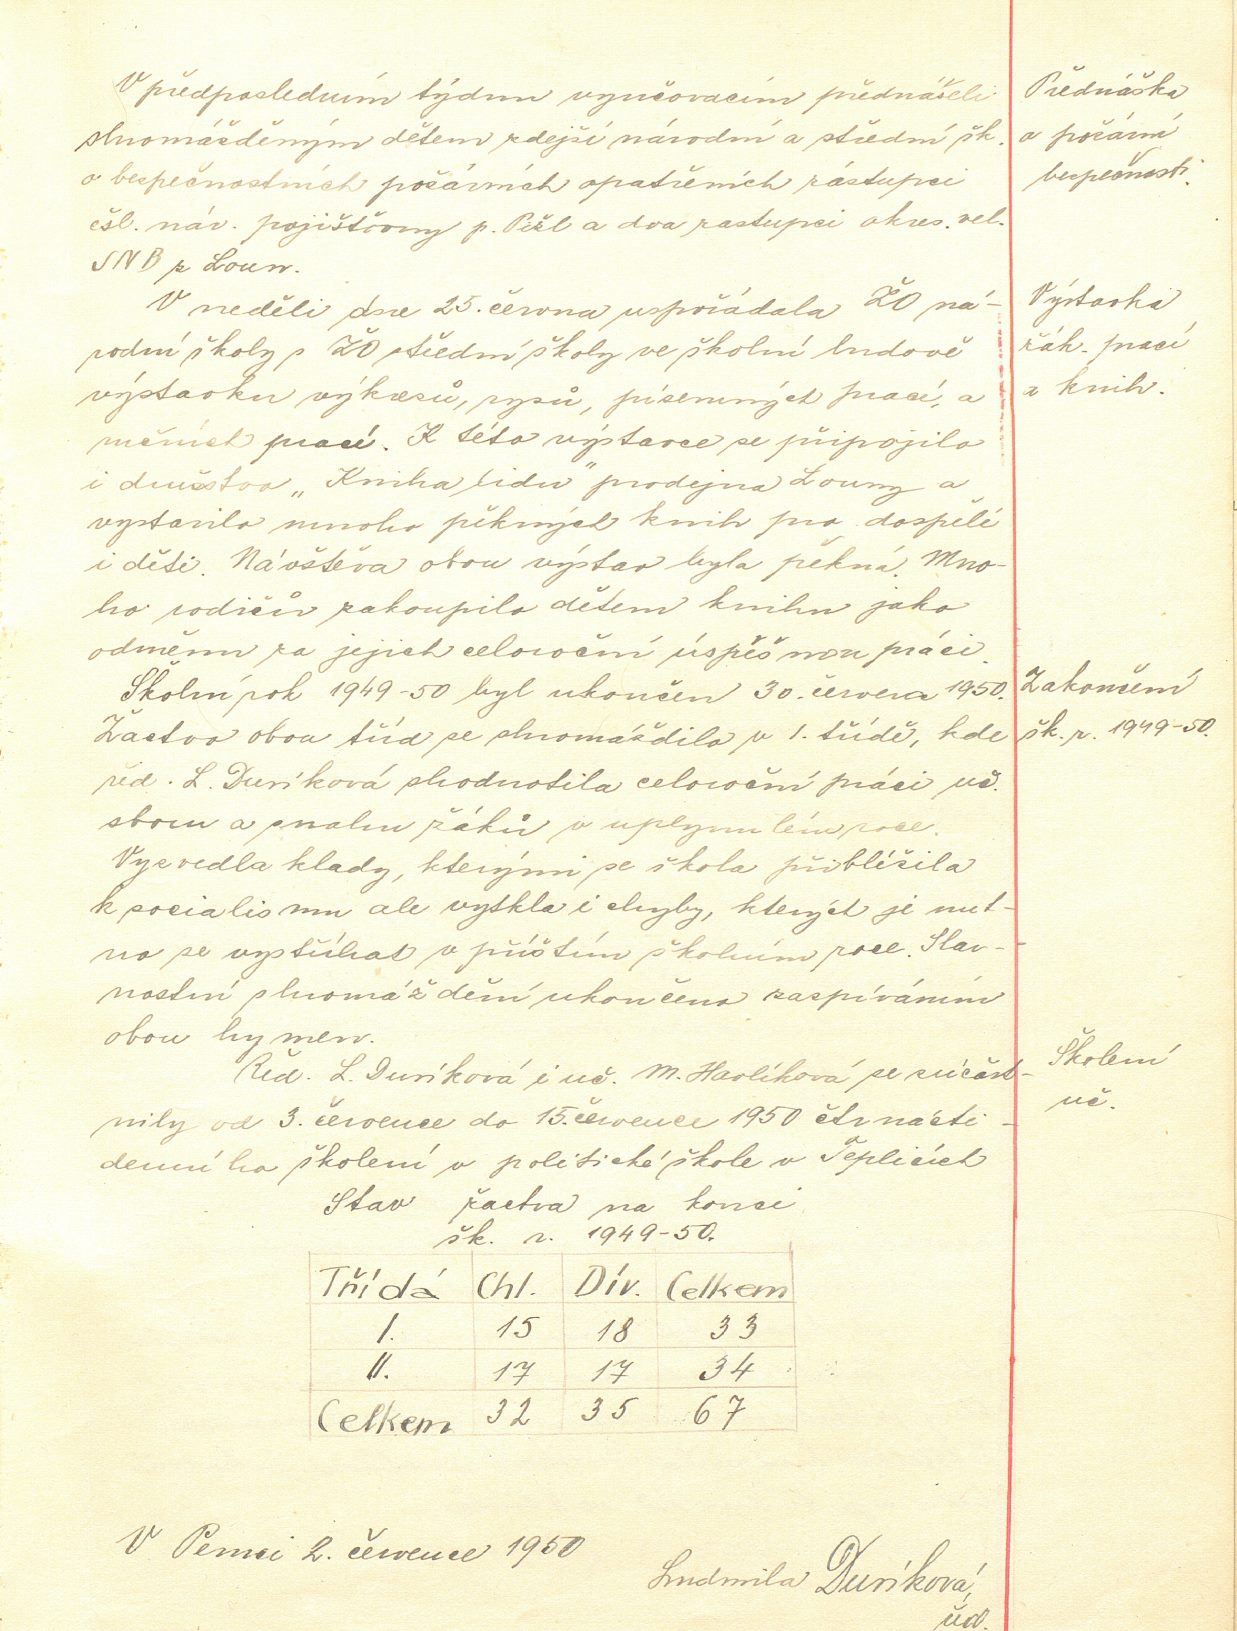 V předposledním týdnu vyučovacím přednášeli
shromážděným dětem zdejší národní a střední šk.
o bezpečnostních požárních opatřeních zástupci
čsl. nár. pojišťovny p. Pižl a dva zástupci okres. vel.
SNB z Loun.
V neděli dne 25. června uspořádala ŽO ná-
rodní školy s ŽO střední školy ve školní budově
výstavku výkresů, rysů, písemných prací, a
ručních prací. K této výstavce se připojilo
i družstvo „Kniha lidu" prodejna Louny a
vystavilo mnoho pěkných knih pro dospělé
i děti. Návštěva obou výstav byla pěkná. Mno-
ho rodičův zakoupilo dětem knihu jako
odměnu za jejich celoroční úspěšnou práci.
Školní rok 1949-50 byl ukončen 30. června 1950.
Žactvo obou tříd se shromáždilo v 1. třídě, kde
řed. L. Duníková zhodnotila celoroční práci uč.
sboru a snahu žáků v uplynulém roce.
Vyzvedla klady, kterými se škola přiblížila
k socialismu ale vytkla i chyby, kterých je nut-
no se vystříhat v příštím školním roce. Slav-
nostní shromáždění ukončeno zaspíváním
obou hymen.
Řed. L. Duníková i uč. M. Havlíková se zúčast-
nily od 3. července do 15. července 1950 čtrnácti-
denního školení v politické škole v Teplicích
Stav žactva na konci
šk. r. 1949-50.
Třída Chl. Dív. Celkem
I. 15 18 33
II. 17 17 34
Celkem 32 35 67
V Pemci 2. července 1950
Ludmila Duníková,
řed.
Přednáška
o požární
bezpečnosti.
Výstavka
žák. prací
a knih.
Zakončení
šk. r. 1949-50.
Školení
uč.